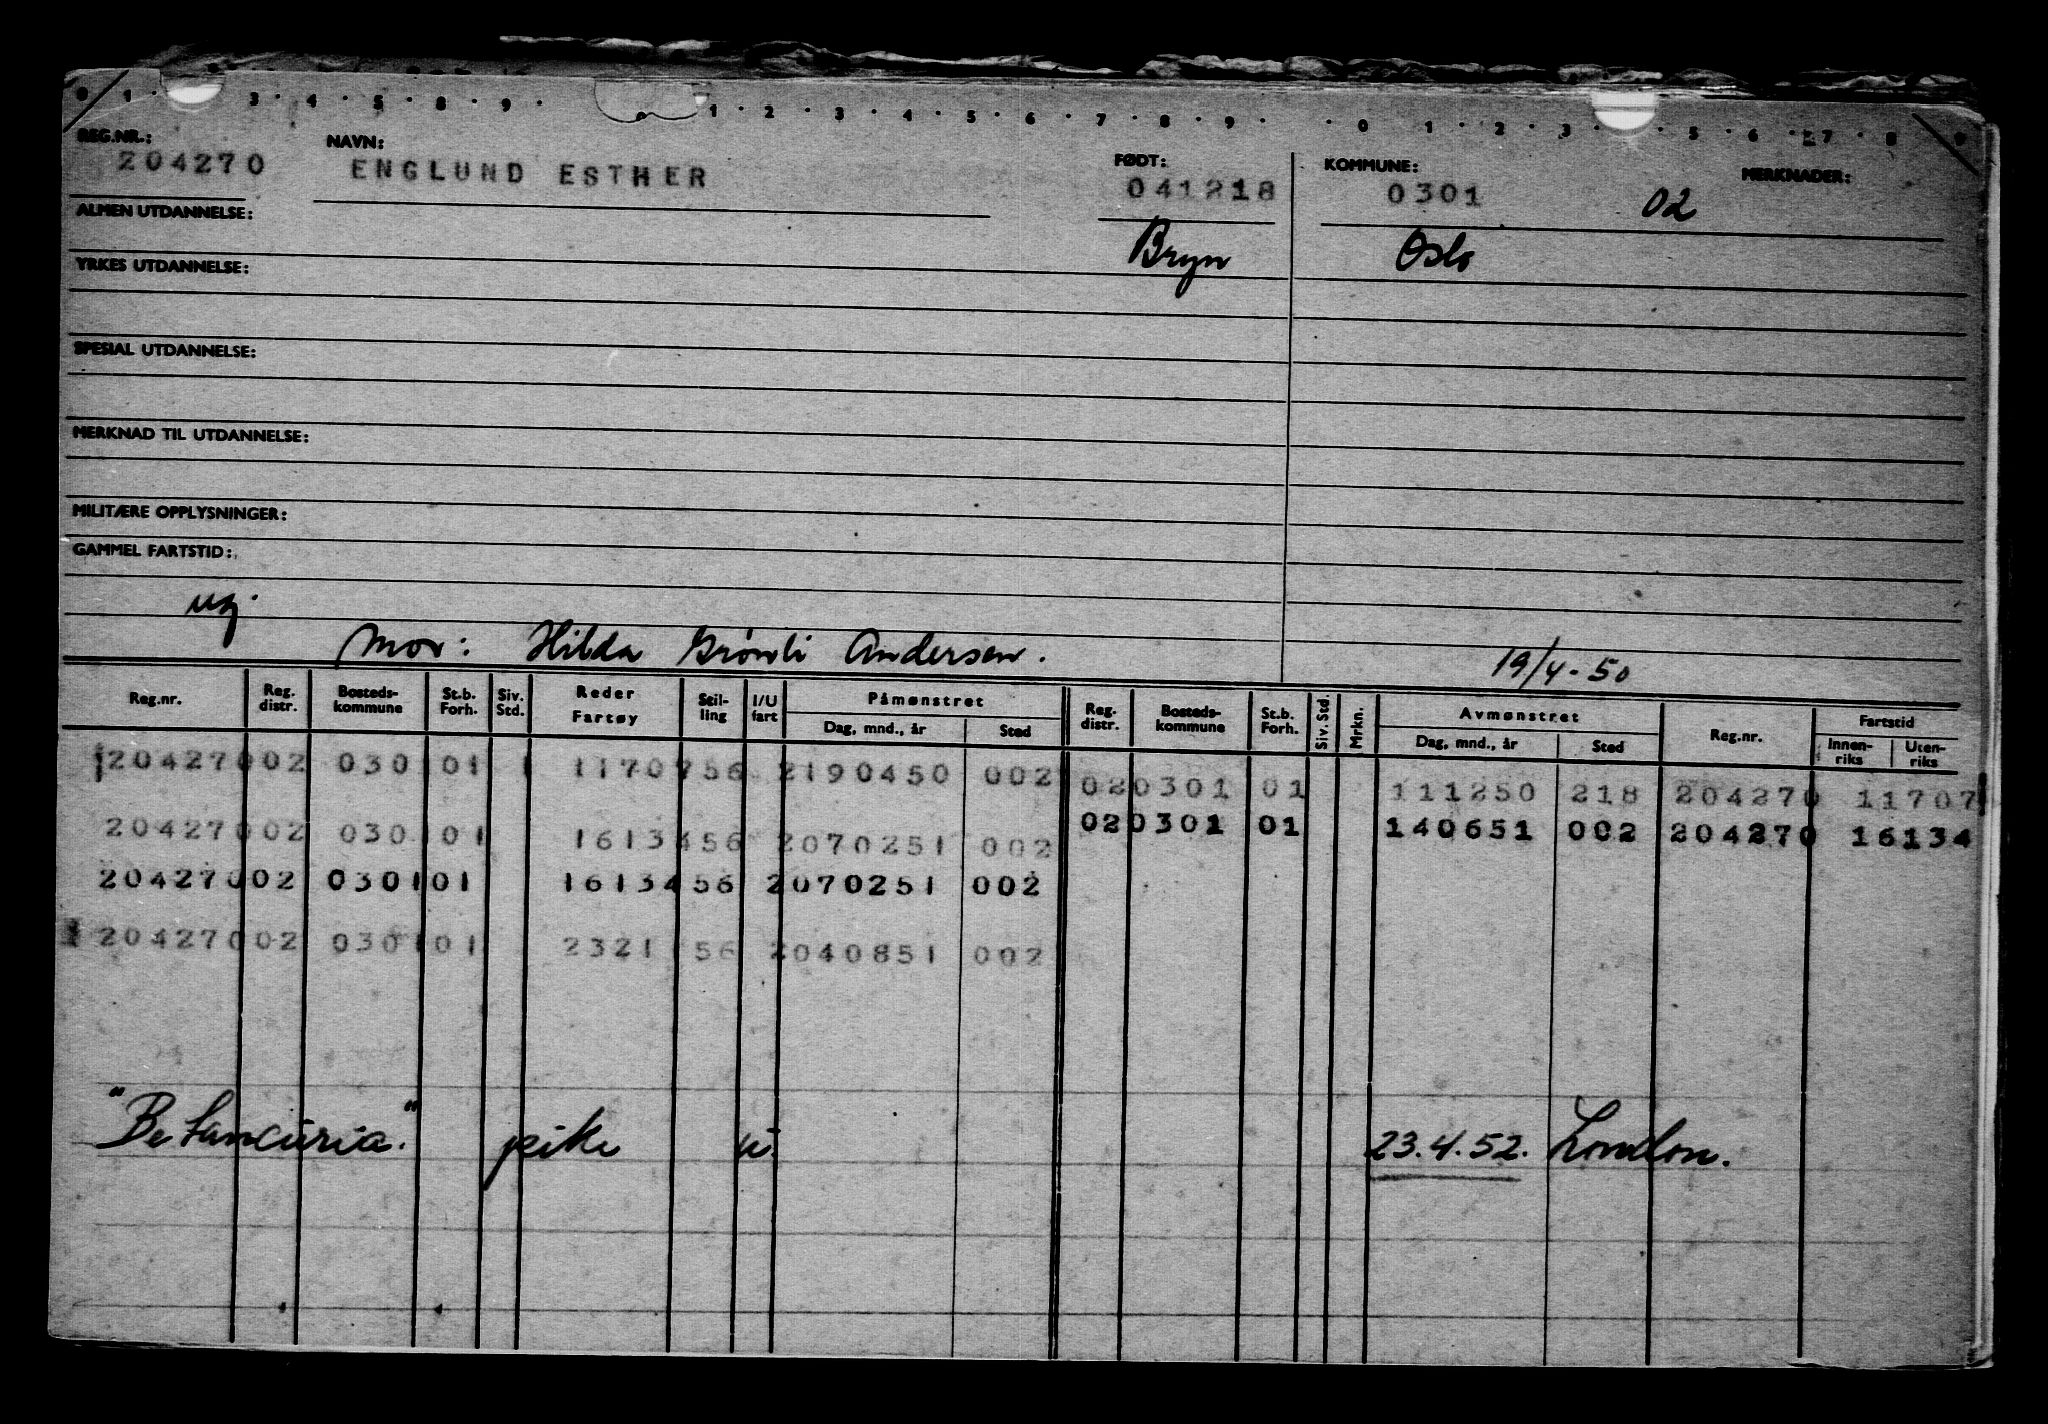 0 1 · 3 · 4 · 5 · 8 · 9 · 0 1 · 2 · 3 · 4 · 5 · 6 · 7 · 8 · 9 · · 0 1 · 2 · 3 · 5 · 6 · 7 · 8 · 9
REG.NR.: NAVN: FØDT: KOMMUNE: MERKNADER:
204270 ENGLUND ESTHER 041218 0301 02
ALMEN UTDANNELSE: Bryn Oslo
YRKES UTDANNELSE:
SPESIAL UTDANNELSE:
MERKNAD TIL UTDANNELSE:
MILITÆRE OPPLYSNINGER:
GAMMEL FARTSTID:
ug.
Mor: Hilda Grønli Andersen. 19/4-50
Reg.nr. Reg. distr. Bosteds-kommune St.b. Forh. Siv. Std. Reder Fartøy Stil-ling I/U fart Påmønstret Dag, mnd., år Sted Reg. distr. Bosteds-kommune St.b. Forh. Siv. Std. Mrkn. Avmønstret Dag, mnd., år Sted Reg.nr. Fartstid Innen-riks Uten-riks
204270 02 0301 01 1 11707 56 2 190450 002 02 0301 01 111250 218 204270 11707
204270 02 0301 01 16134 56 2 070251 002 02 0301 01 140651 002 204270 16134
204270 02 0301 01 16134 56 2 070251 002
204270 02 0301 01 2321 56 2 040851 002
"Betancuria." pike u. 23.4.52. London.